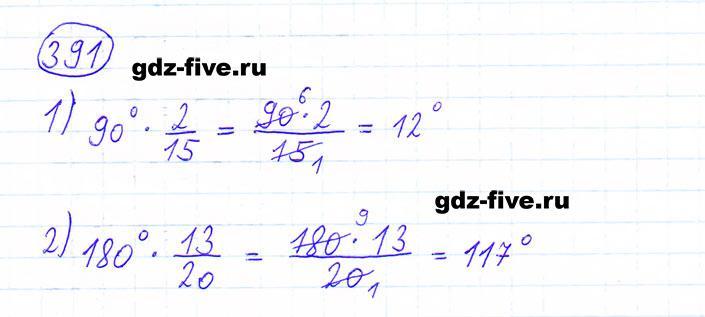 391
gdz-five.ru
1) 90° · 2/15 = 90⁶ · 2/15₁ = 12°
gdz-five.ru
2) 180° · 13/20 = 180⁹ · 13/20₁ = 117°